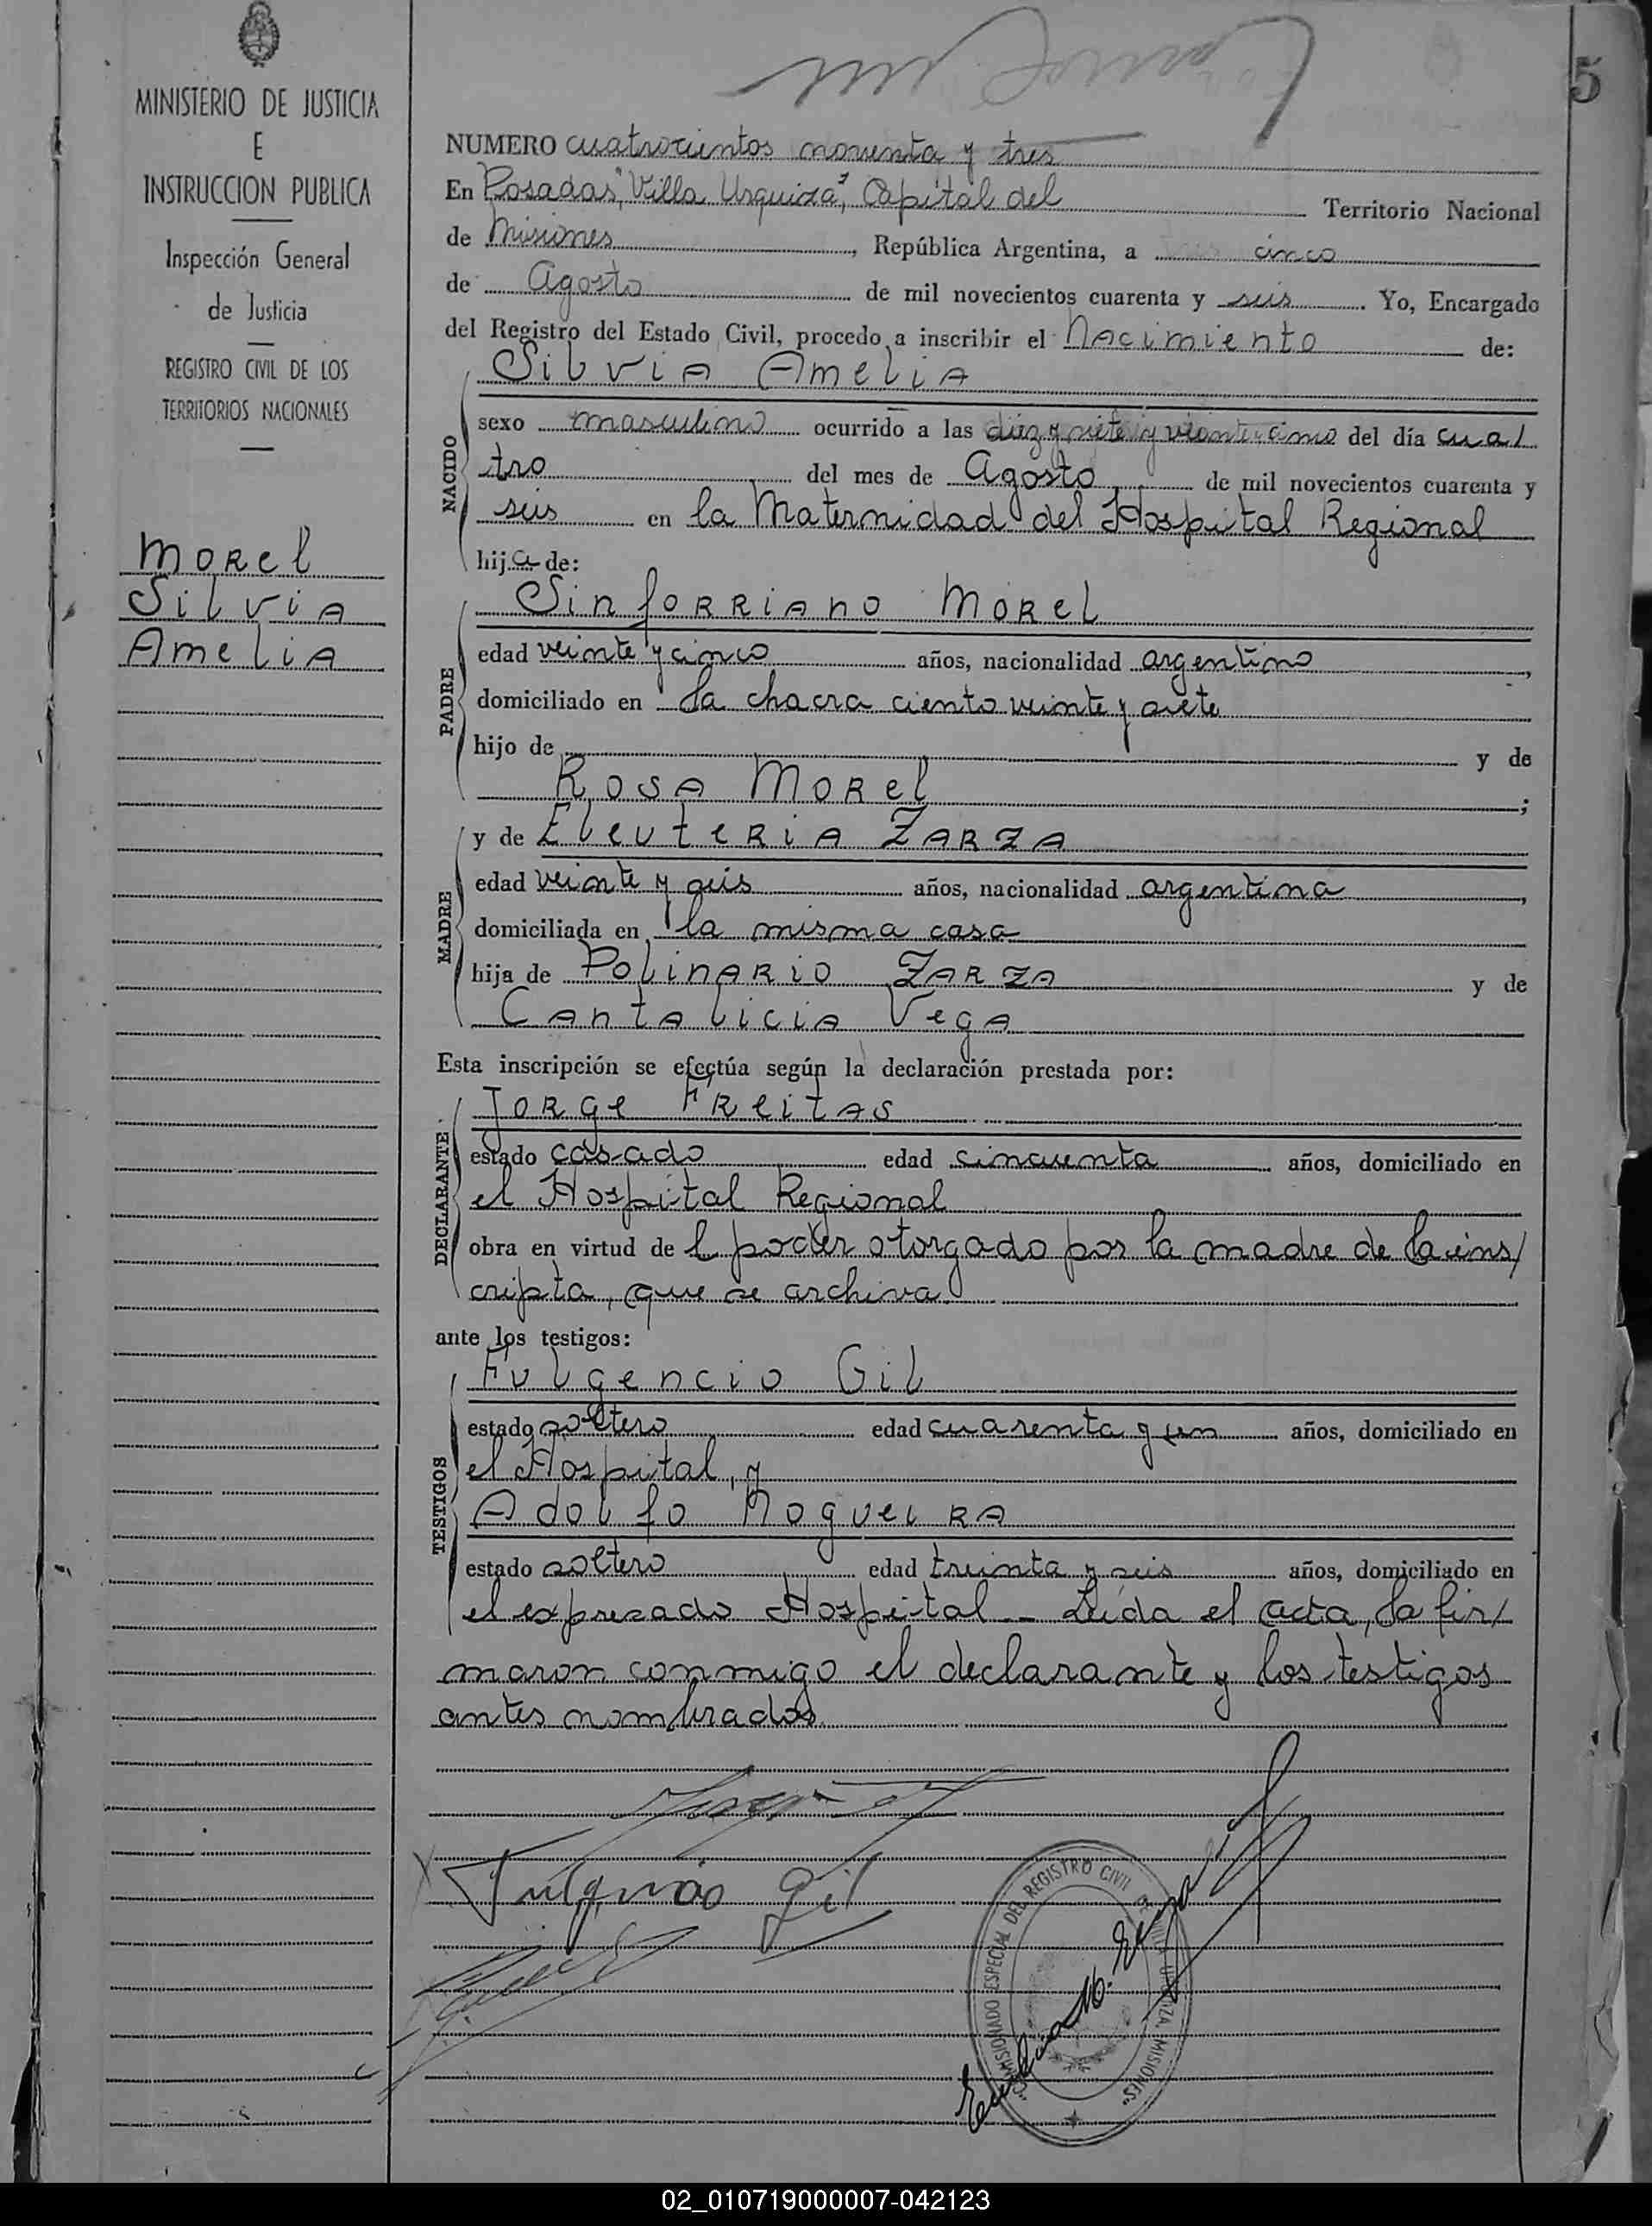 5
MINISTERIO DE JUSTICIA
E
INSTRUCCION PUBLICA
Inspección General
de Justicia
REGISTRO CIVIL DE LOS
TERRITORIOS NACIONALES
Morel
Silvia
Amelia
NUMERO cuatrocientos noventa y tres
En Posadas, "Villa Urquiza", Capital del Territorio Nacional
de Misiones, República Argentina, a cinco
de Agosto de mil novecientos cuarenta y seis. Yo, Encargado
del Registro del Estado Civil, procedo a inscribir el Nacimiento de:
NACIDO
Silvia Amelia
sexo masculino ocurrido a las diez y siete y veinte y cinco del día cua/
tro del mes de Agosto de mil novecientos cuarenta y
seis en la Maternidad del Hospital Regional
hija de:
PADRE
Sinforriano Morel
edad veinte y cinco años, nacionalidad argentino,
domiciliado en la chacra ciento veinte y siete
hijo de y de
Rosa Morel;
MADRE
y de Eleuteria Zarza
edad veinte y seis años, nacionalidad argentina,
domiciliada en la misma casa
hija de Polinario Zarza y de
Cantalicia Vega
Esta inscripción se efectúa según la declaración prestada por:
DECLARANTE
Jorge Freitas
estado casado edad cincuenta años, domiciliado en
el Hospital Regional
obra en virtud de l poder otorgado por la madre de la ins/
cripta, que se archiva
ante los testigos:
TESTIGOS
Fulgencio Gil
estado soltero edad cuarenta y un años, domiciliado en
el Hospital, y
Adolfo Nogueira
estado soltero edad treinta y seis años, domiciliado en
el expresado Hospital - Leída el acta, la fir/
maron conmigo el declarante y los testigos
antes nombrados.
Fulgencio Gil
COMISIONADO ESPECIAL DEL REGISTRO CIVIL DE VILLA URQUIZA, MISIONES
02_010719000007-042123